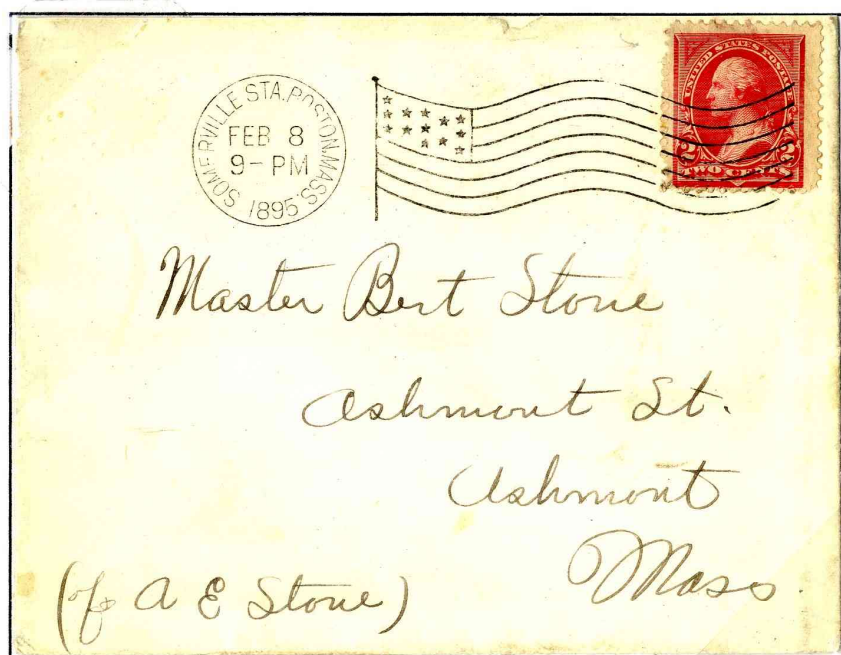 SOMERVILLE STA. BOSTON, MASS.
FEB 8
9- PM
1895
UNITED STATES POSTAGE
2 2
TWO CENTS
Master Bert Stone
Ashmont St.
Ashmont
Mass
( A E Stone)